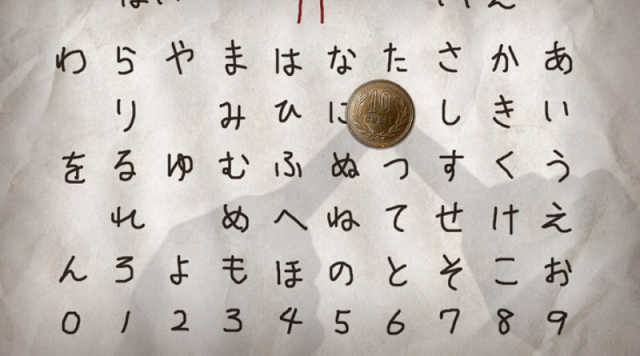 わ ら や ま は な た さ か あ
り み ひ し き い
10
を る ゆ む ふ ぬ つ す く う
れ め へ ね て せ け え
ん ろ よ も ほ の と そ こ お
0 1 2 3 4 5 6 7 8 9